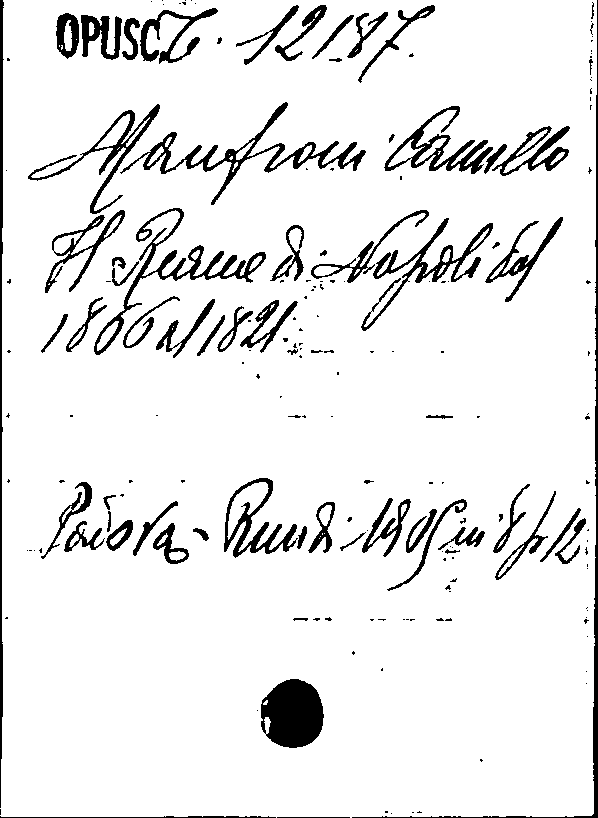 OPUSC. C. 12187.
Manfroni Camillo
Il Reame di Napoli dal
1806 al 1821.
Padova - Randi 1905 in 8 p. 12